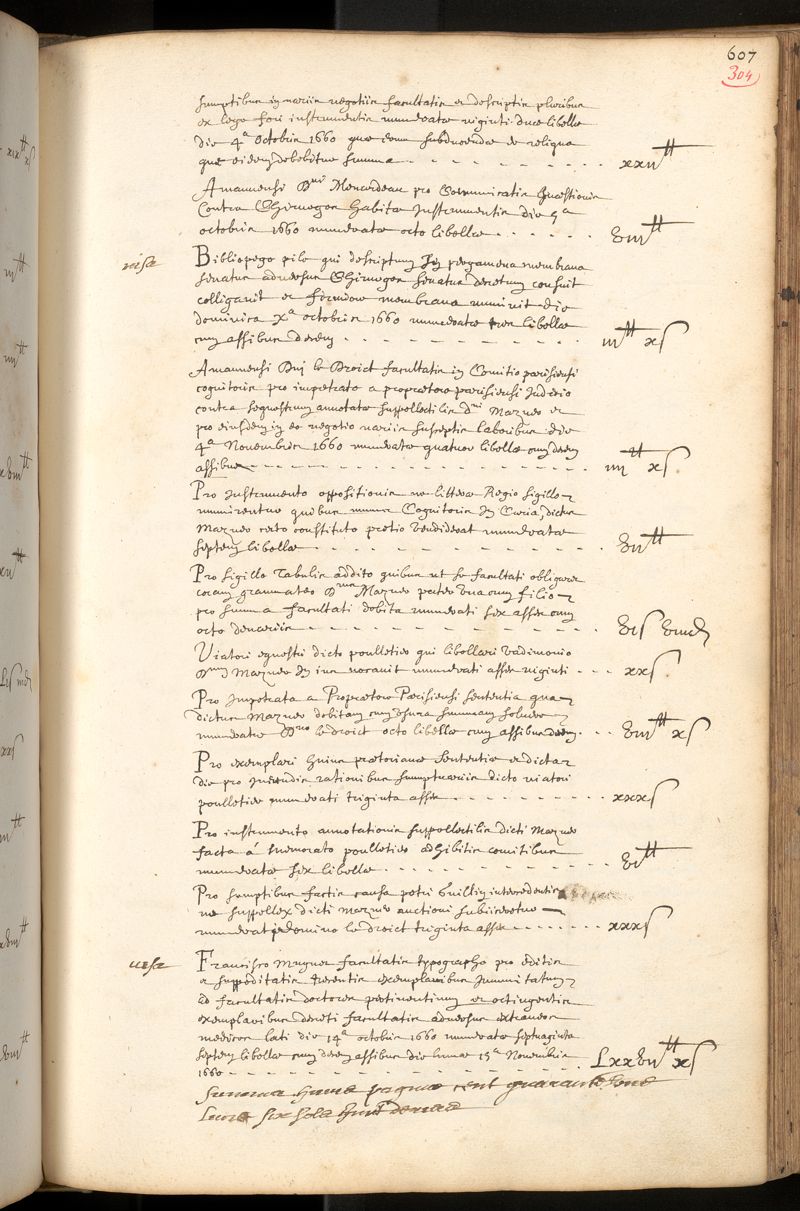 607
304
sumptibus in variis negotiis facultatis et descriptis pluribus
ex lege fori instrumentis numeratae viginti duae libellae
die 4ª octobris 1660 quae erant subducendae de reliqua
quae eidem debebitur summa xxiitt
Amanuensi Dni Menardeau pro Communicatis quaestionis
Contra Chirurgos habitae Instrumentis die 5ª
octobris 1660 numeratae octo libellae viiitt
visa
Bibliopego pilo qui descriptum in pergamena membrana
senatus adversus Chirurgos senatus decretum consuit
colligavit et membrana munivit die
dominica Xª octobris 1660 numeratae tres libellae
cum assibus decem iiitt xs
Amanuensi Dni le Droict facultatis in Comitio parisiensi
cognitoris pro impetrato a propraetore parisiensi Judicio
contra sequestrum annotatae suppellectilis dni Mazuer et
pro eiusdem in eo negotio variis susceptis laboribus die
4ª Novembris 1660 numeratae quatuor libellae cum decem
assibus iiiitt xs
Pro Instrumento oppositionis ne litterae Regio sigillo
munirentur quibus munus Cognitoris in Curia, dictus
Mazuer certo constituto pretio vendiderat numeratae
septem libellae viitt
Pro sigillo Tabulis addito quibus ut se facultati obligaret
coram grammateo Dnus Mazuer pater una cum filio
pro summa facultati debita numerati sex asses cum
octo denariis vis viiid
Viatori equestri dicto poulletier qui libellari vadimonio
Dnum Mazuer in ius vocavit numerati asses viginti xxs
Pro Impetrata a Propraetore Parisiensi sententia qua
dictus Mazuer debitam cum usura summam solvere
numeratae Dno le droict octo libellae cum assibus decem viiitt xs
Pro exemplari huius praetorianae sententiae et dicta
die pro rationibus sumptuariis dicto viatori
poulletier numerati triginta asses xxxs
Pro instrumento annotationis suppellectilis dicti Mazuer
facta á memorato poulletier adhibitis comitibus
numeratae sex libellae vitt
Pro sumptibus factis causa petri intercedentis
ne suppellex dicti mazuer auctioni subiiceretur
numerati domino le droict triginta asses xxxs
visa
Francisco Muguet facultatis typographo pro editis
et suppeditatis trecentis exemplaribus Immunitatum
ad facultatis doctores pertinentium et octingentis
exemplaribus decreti facultatis adversus extraneos
medicos lati die 14ª octobris 1660 numeratae septuaginta
septem libellae cum decem assibus die lunae 15ª Novembris
1660 Lxxviitt xs
Summa huius paginae cent quarante
livres six sols huit deniers